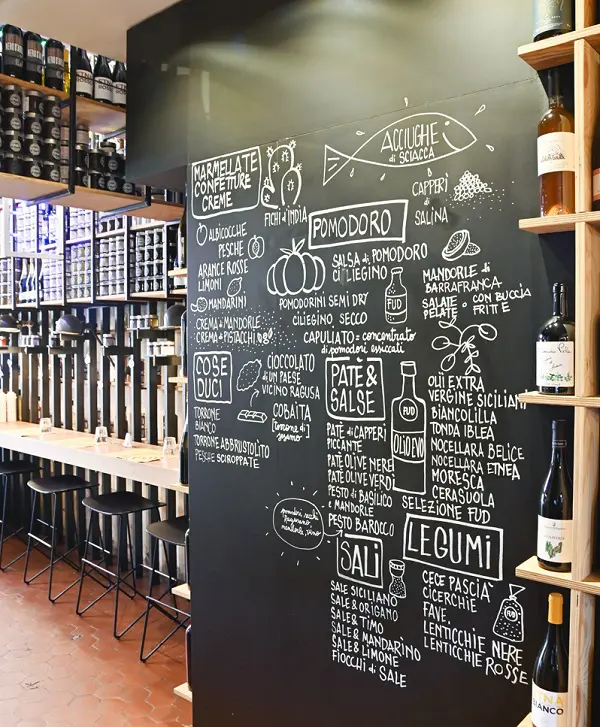 ACCIUGHE
di SCIACCA
MARMELLATE
CONFETTURE
CREME
FICHI d'INDIA
CAPPERI
di
SALINA
ALBICOCCHE
PESCHE
ARANCE ROSSE
LIMONI
MANDARINI
CREMA di MANDORLE
CREMA di PISTACCHI
POMODORO
SALSA di POMODORO
CILIEGINO
POMODORINI SEMI DRY
CILIEGINO SECCO
CAPULIATO = concentrato
di pomodori essiccati
FUD
MANDORLE di
BARRAFRANCA
SALATE - CON BUCCIA
PELATE FRITTE
COSE
DUCI
TORRONE
BIANCO
TORRONE ABBRUSTOLITO
PESCHE SCIROPPATE
CIOCCOLATO
di UN PAESE
VICINO RAGUSA
COBAITA
[torrone di
sesamo]
PATÈ &
SALSE
PATÈ di CAPPERI
PICCANTE
PATÈ OLIVE NERE
PATÈ OLIVE VERDI
PESTO di BASILICO
e MANDORLE
PESTO BAROCCO
FUD
OLIO EVO
OLII EXTRA
VERGINE SICILIANI
BIANCOLILLA
TONDA IBLEA
NOCELLARA BELICE
NOCELLARA ETNEA
MORESCA
CERASUOLA
SELEZIONE FUD
SALI
SALE SICILIANO
SALE & ORIGANO
SALE & TIMO
SALE & MANDARINO
SALE & LIMONE
FIOCCHI di SALE
LEGUMI
CECE PASCIÀ
CICERCHIE
FAVE
LENTICCHIE NERE
LENTICCHIE ROSSE
FUD
BIANCO